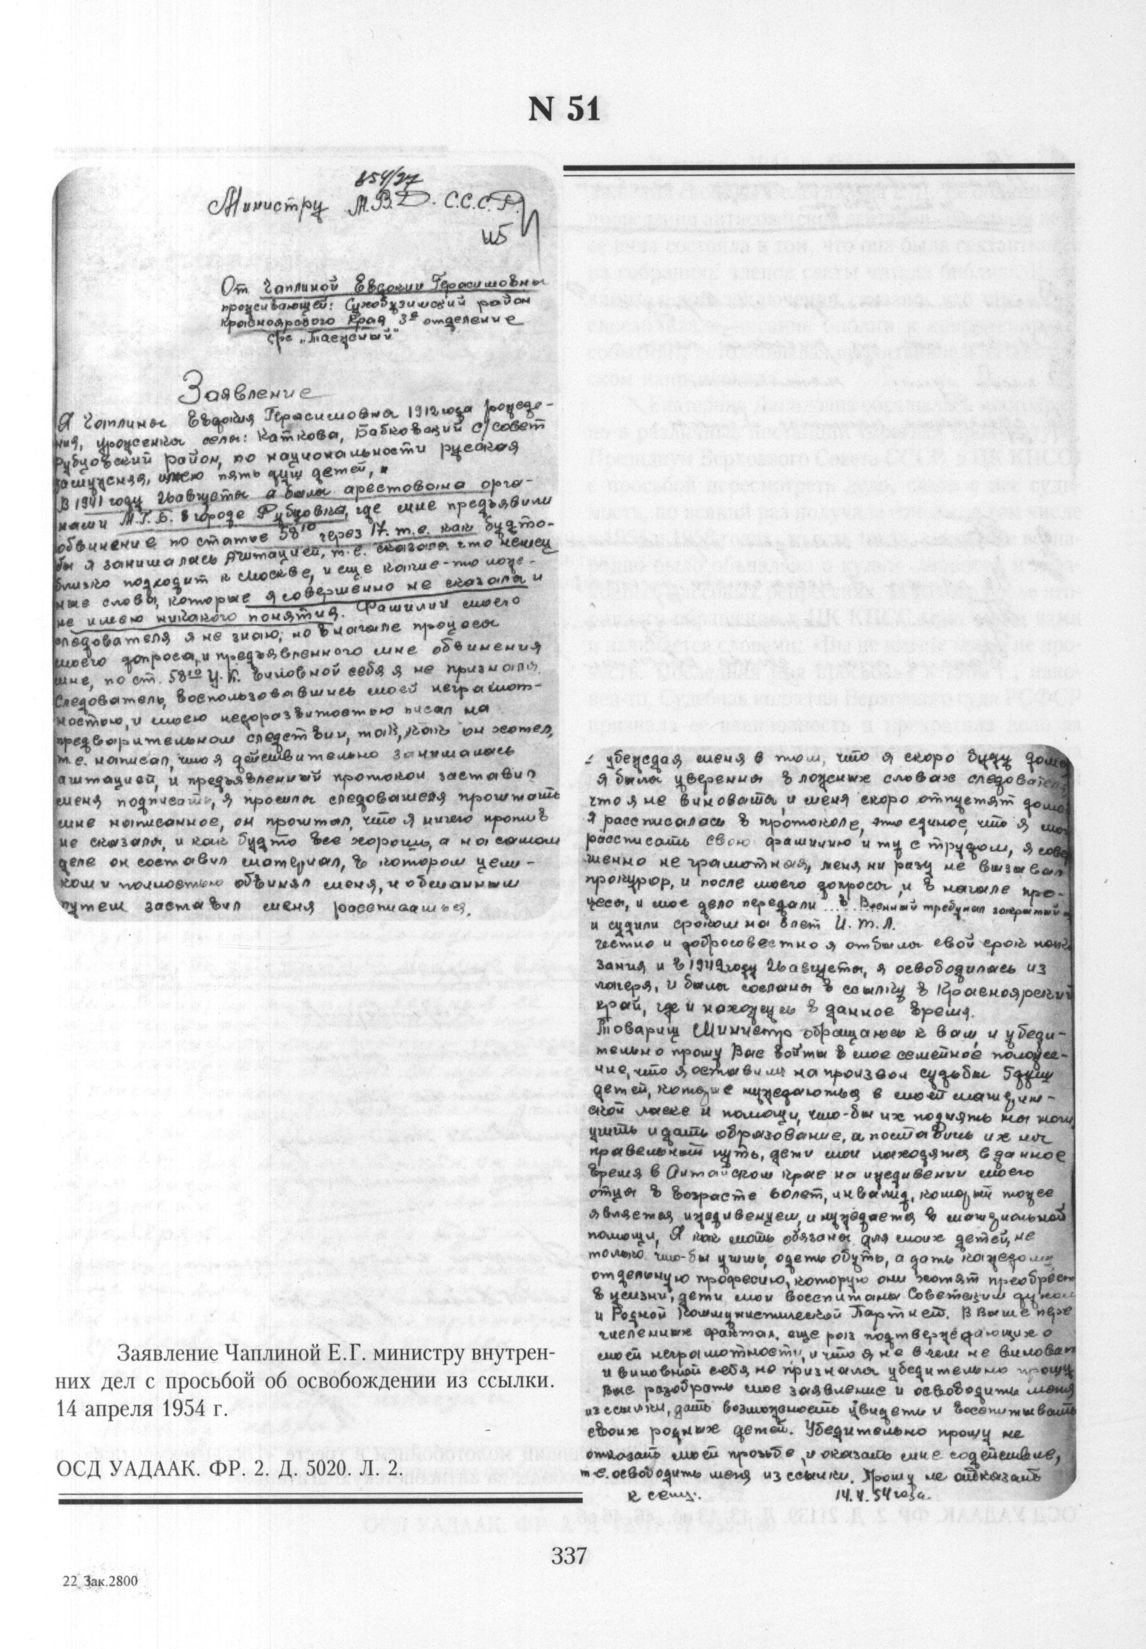 N 51
854/27
Министру М.В.Д. С.С.С.Р.
От Чаплиной Евдокии Герасимовны
проживающей: Сухобузимский район
Красноярского Края 3е отделение
"Таежный"
Заявление
Я Чаплина Евдокия Герасимовна 1912 года рожде-
ния, уроженка села: Каткова, Бабковский с/совет
Рубцовский район, по национальности русская
замужняя, имею пять душ детей,
В 1941 году 26 августа я была арестована орга-
нами М.Г.Б. в городе Рубцовка, где мне предъявили
обвинение по статье 58/10 через 17. т.е. как будто-
бы я занималась агитацией, т.е. сказала что немец
близко подходит к Москве, и еще какие-то лож-
ные слова, которые я совершенно не сказала и
не имею никакого понятия. Фамилии своего
следователя я не знаю, но в начале процеса
моего допроса, и предъявленного мне обвинения
мне, по ст. 58/10 У.К. виновной себя я не признала.
Следователь, воспользовавшись моей неграмот-
ностью, и моею недоразвитостью писал на
предварительном следствии, так, как он хотел,
т.е. написал, что я действительно занималась
агитацией, и предъявленный протокол заставил
меня подписать, я просила следователя прочитать
мне написанное, он прочитал, что я ничего против
не сказала, и как будто все хорошо, а на самом
деле он составил материал, в котором цели-
ком и полностью обвинял меня, и обманным
путем заставил меня рассписаться.
убеждая меня в том, что я скоро буду дома
я была уверенна в ложных словах следователя
что я не виновата, и меня скоро отпустят домой
я рассписалась в протоколе, это единое, что я могу
рассписать свою фамилию и ту с трудом, я совер
шенно не грамотная, меня ни разу не вызывал
прокурор, и после моего допроса, и в начале про-
цеса, и мое дело передали в Военный трибунал закрытый
и судили сроком на 8 лет И.Т.Л.
Честно и добросовестно я отбыла свой срок нака
зания и в 1949 году 26 августа, я освободилась из
лагеря, и была сослана в ссылку в Красноярский
край, где и нахожусь в данное время.
Товарищ Министр обращаюсь к вам, и убеди-
тельно прошу Вас войти в мое семейное положе-
ние, что я оставила на произвол судьбы 5 душ
детей, которые нуждаються в моей материн-
ской ласке и помощи, что-бы их поднять на ноги,
учить и дать образование, и поставить их на
правельный путь, дети мои находятся в данное
время в Алтайском крае на иждивении моего
отца в возрасте 60 лет, инвалид, который тоже
является иждивенцем, и нуждается в материальной
помощи, Я как мать обязана для моих детей, не
только что-бы учить, одеть обуть, а дать каждому
отдельную професию, которую они хотят преобрест
в жизни, дети мои восспитаны Советским духом
и Родной Коммунистической Партией. В выше пере
численных фактах, еще раз подтверждающих о
моей неграмотности, и что я не в чем не виноват
и виновной себя не признала убедительно прошу
Вас разобрать мое заявление и освободить меня
из ссылки, дать возможность увидеть и восспитывать
своих родных детей. Убедительно прошу не
отказать моей прозьбе, и оказать мне содействие,
т.е. освободить меня из ссылки. Прошу не отказать
к сему:
14.4.54 года.
Заявление Чаплиной Е.Г. министру внутрен-
них дел с просьбой об освобождении из ссылки.
14 апреля 1954 г.
ОСД УАДААК. ФР. 2. Д. 5020. Л. 2.
337
22 Зак.2800